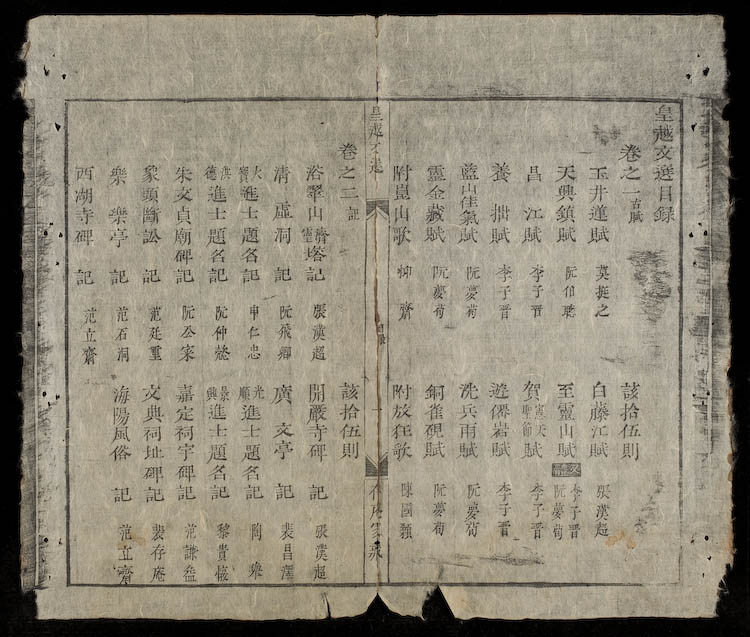 皇越文選目錄
卷之一 古賦 該拾伍則
玉井蓮賦 莫挺之 白藤江賦 張漢超
天興鎮賦 阮伯聰 至靈山賦 李子晉 阮夢荀
昌江賦 李子晉 賀 天聖節 賦 李子晉
養拙賦 李子晉 遊僊岩賦 李子晉
藍山佳氣賦 阮夢荀 洗兵雨賦 阮夢荀
靈金藏賦 阮夢荀 銅雀硯賦 阮夢荀
附崑山歌 抑齋 附放狂歌 陳國顥
皇越文選
目錄 一
卷之二 記 該拾伍則
浴翠山靈濟塔記 張漢超 開嚴寺碑記 張漢超
清虛洞記 阮飛卿 廣文亭記 裴昌澤
大寶進士題名記 申仁忠 光順進士題名記 陶舉
洪德進士題名記 阮仲 景興進士題名記 黎貴惇
朱文貞廟碑記 阮公寀 嘉定祠宇碑記 范謙益
象頭斷訟記 范廷重 文典祠址碑記 裴存庵
樂樂亭記 范石洞 海陽風俗記 范立齋
西湖寺碑記 范立齋